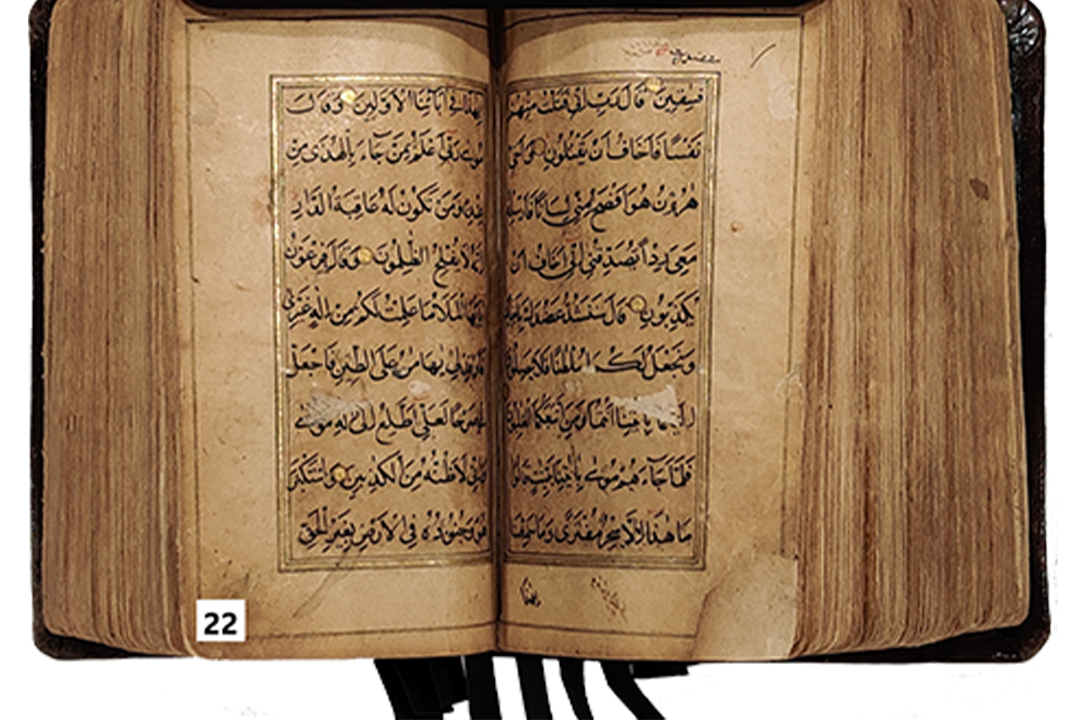 فٰسِقِينَ قَالَ رَبِّ اِنِّى قَتَلْتُ مِنْهُمْ
نَفْسًا فَاَخَافُ اَنْ يَقْتُلُونِ وَاَخِى
هٰرُونُ هُوَ اَفْصَحُ مِنِّى لِسَانًا فَاَرْسِلْهُ
مَعِىَ رِدْاً يُصَدِّقُنِى اِنِّى اَخَافُ اَنْ
يُكَذِّبُونِ قَالَ سَنَشُدُّ عَضُدَكَ بِاَخِيكَ
وَنَجْعَلُ لَكُمَا سُلْطٰنًا فَلَا يَصِلُونَ
اِلَيْكُمَا بِاٰيٰتِنَا اَنْتُمَا وَمَنِ اتَّبَعَكُمَا الْغٰلِبُونَ
فَلَمَّا جَآءَهُمْ مُوسٰى بِاٰيٰتِنَا بَيِّنٰتٍ قَالُوا
مَا هٰذَا اِلَّا سِحْرٌ مُفْتَرًى وَمَا سَمِعْنَا
بِهٰذَا فِى اٰبَآئِنَا الْاَوَّلِينَ وَقَالَ
مُوسٰى رَبِّى اَعْلَمُ بِمَنْ جَآءَ بِالْهُدٰى مِنْ
عِنْدِهٖ وَمَنْ تَكُونُ لَهُ عَاقِبَةُ الدَّارِ
اِنَّهُ لَا يُفْلِحُ الظّٰلِمُونَ وَقَالَ فِرْعَوْنُ
يٰٓاَيُّهَا الْمَلَاُ مَا عَلِمْتُ لَكُمْ مِنْ اِلٰهٍ غَيْرِى
فَاَوْقِدْ لِى يٰهَامٰنُ عَلَى الطِّينِ فَاجْعَلْ
لِى صَرْحًا لَعَلِّى اَطَّلِعُ اِلٰى اِلٰهِ مُوسٰى
وَاِنِّى لَاَظُنُّهُ مِنَ الْكٰذِبِينَ وَاسْتَكْبَرَ
هُوَ وَجُنُودُهُ فِى الْاَرْضِ بِغَيْرِ الْحَقِّ
22